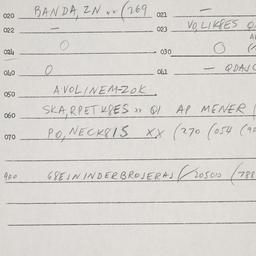 020 BANDA, ZN »» (269 021 —
022 — 023 VO, LIK8ES
024 O 030 O
040 O 041 — QDAJC
050 AVOLINEM-ZOK.
060 SKA, RPETK8ES »» Q1 AP MENER
070 PO, NECK81S XX (270 (054
900 G8EJNINDERBROJERAJ (/205010 (788